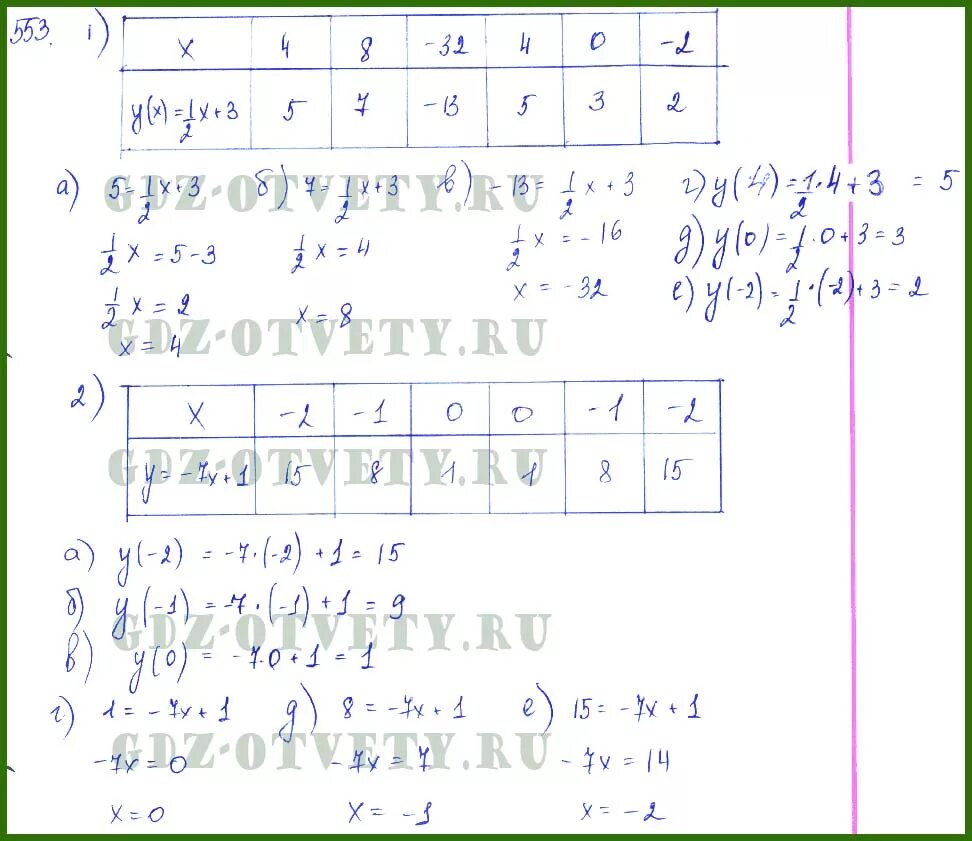 553. 1)
x 4 8 -32 4 0 -2
y(x)=1/2x+3 5 7 -13 5 3 2
а) 5=1/2x+3 б) 7=1/2x+3 в) -13=1/2x+3 г) y(4)=1/2·4+3=5
GDZ-OTVETY.RU
1/2x=5-3 1/2x=4 1/2x=-16 д) y(0)=1/2·0+3=3
1/2x=2 x=8 x=-32 е) y(-2)=1/2·(-2)+3=2
x=4
GDZ-OTVETY.RU
2)
x -2 -1 0 0 -1 -2
y=-7x+1 15 8 1 1 8 15
GDZ-OTVETY.RU
а) y(-2)=-7·(-2)+1=15
б) y(-1)=-7·(-1)+1=9
GDZ-OTVETY.RU
в) y(0)=-7·0+1=1
г) 1=-7x+1 д) 8=-7x+1 е) 15=-7x+1
-7x=0 -7x=7 -7x=14
GDZ-OTVETY.RU
x=0 x=-1 x=-2